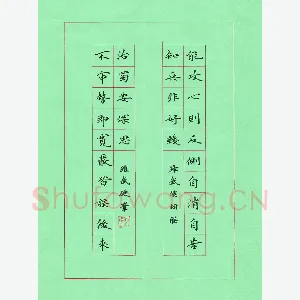 能攻心則反側自消自古
知兵非好戰
不審勢即寬嚴皆誤後來
治蜀要深思
Shufawang.CN